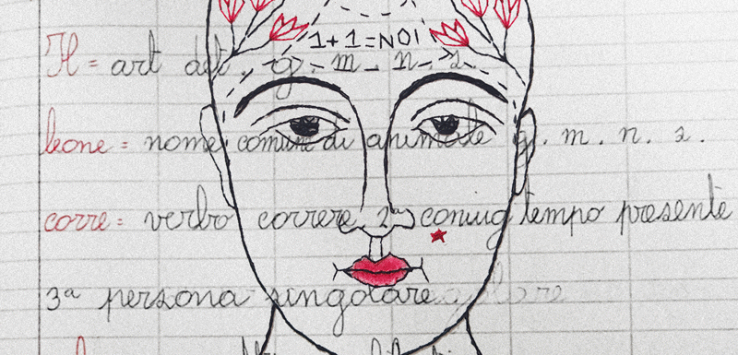 1+1=NOI
Il = art det. g. m. n. s.
leone = nome comune di animale g. m. n. s.
corre = verbo correre 2ª coniug tempo presente
3ª persona singolare